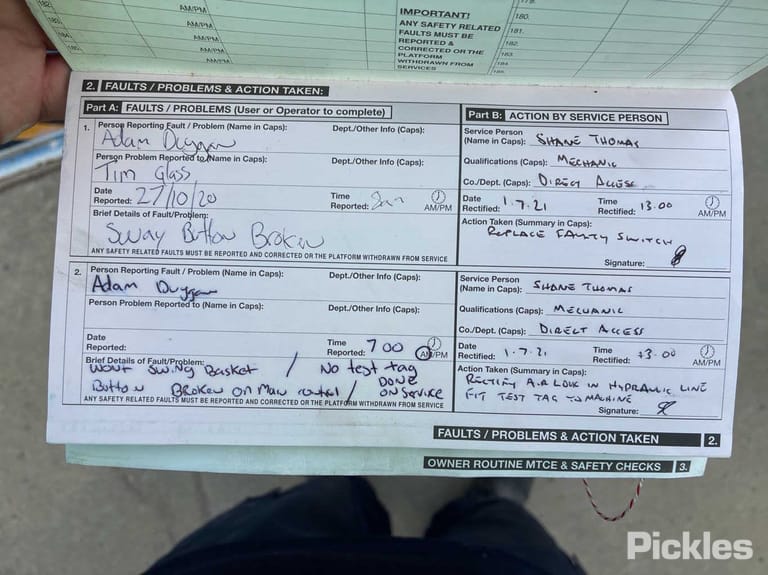 179.
182.
AM/PM
180.
183.
AM/PM
IMPORTANT!
ANY SAFETY RELATED
FAULTS MUST BE
REPORTED &
CORRECTED OR THE
PLATFORM
WITHDRAWN FROM
SERVICES
181.
182.
183.
184.
184.
AM/PM
AM/PM
AM/PM
2. FAULTS / PROBLEMS & ACTION TAKEN:
Part A: FAULTS / PROBLEMS (User or Operator to complete)
Part B: ACTION BY SERVICE PERSON
1. Person Reporting Fault / Problem (Name in Caps): Dept./Other Info (Caps):
Adam Duggan
Person Problem Reported to (Name in Caps): Dept./Other Info (Caps):
Tim Glass
Date Reported: 27/10/20 Time Reported: AM/PM
Brief Details of Fault/Problem:
Sway Button Broken
ANY SAFETY RELATED FAULTS MUST BE REPORTED AND CORRECTED OR THE PLATFORM WITHDRAWN FROM SERVICE
Service Person (Name in Caps): SHANE THOMAS
Qualifications (Caps): MECHANIC
Co./Dept. (Caps): DIRECT ACCESS
Date Rectified: 1.7.21 Time Rectified: 13.00 AM/PM
Action Taken (Summary in Caps):
REPLACE FAULTY SWITCH
Signature:
2. Person Reporting Fault / Problem (Name in Caps): Dept./Other Info (Caps):
Adam Duggan
Person Problem Reported to (Name in Caps): Dept./Other Info (Caps):
Date Reported: Time Reported: 700 AM/PM
Brief Details of Fault/Problem:
wont swing Basket / No test tag
Button Broken on Main control / DONE ON SERVICE
ANY SAFETY RELATED FAULTS MUST BE REPORTED AND CORRECTED OR THE PLATFORM WITHDRAWN FROM SERVICE
Service Person (Name in Caps): SHANE THOMAS
Qualifications (Caps): MECHANIC
Co./Dept. (Caps): DIRECT ACCESS
Date Rectified: 1.7.21 Time Rectified: 13.00 AM/PM
Action Taken (Summary in Caps):
RECTIFY AIR LOCK IN HYDRAULIC LINE
FIT TEST TAG TO MACHINE
Signature:
FAULTS / PROBLEMS & ACTION TAKEN 2.
OWNER ROUTINE MTCE & SAFETY CHECKS 3.
Pickles